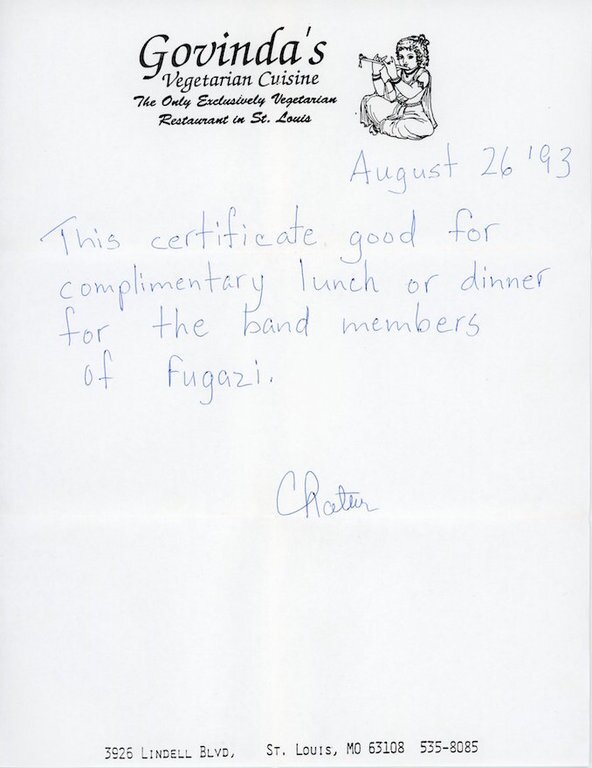 Govinda's
Vegetarian Cuisine
The Only Exclusively Vegetarian
Restaurant in St. Louis
August 26 '93
This certificate good for
complimentary lunch or dinner
for the band members
of Fugazi.
3926 LINDELL BLVD, ST. LOUIS, MO 63108 535-8085